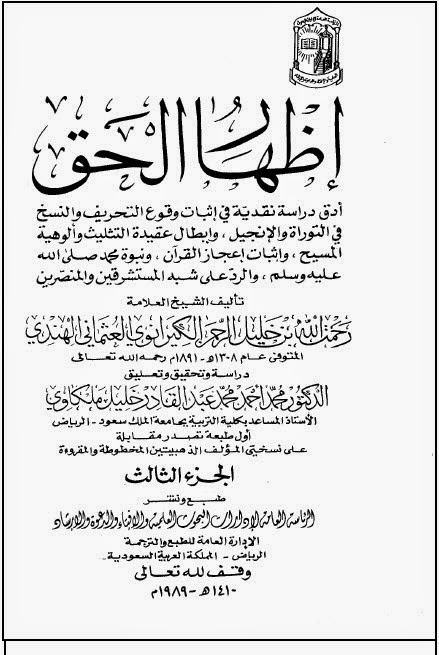 إظهار الحق
أدق دراسة نقدية في إثبات وقوع التحريف والنسخ
في التوراة والإنجيل ، وإبطال عقيدة التثليث وألوهية
المسيح ، وإثبات إعجاز القرآن ، ونبوة محمد صلى الله
عليه وسلم ، والرد على شبه المستشرقين والمنصرين
تأليف الشيخ العلامة
رحمت الله بن خليل الرحمن الكيرانوي العثماني الهندي
المتوفى عام ١٣٠٨هـ - ١٨٩١م رحمه الله تعالى
دراسة وتحقيق وتعليق
الدكتور محمد أحمد محمد عبد القادر خليل ملكاوي
الأستاذ المساعد بكلية التربية بجامعة الملك سعود - الرياض
أول طبعة تصدر مقابلة
على نسختي المؤلف الذهبيتين المخطوطة والمقروءة
الجزء الثالث
طبع ونشر
الرئاسة العامة لإدارات البحوث العلمية والإفتاء والدعوة والإرشاد
الإدارة العامة للطبع والترجمة
الرياض - المملكة العربية السعودية
وقف لله تعالى
١٤١٠هـ - ١٩٨٩م